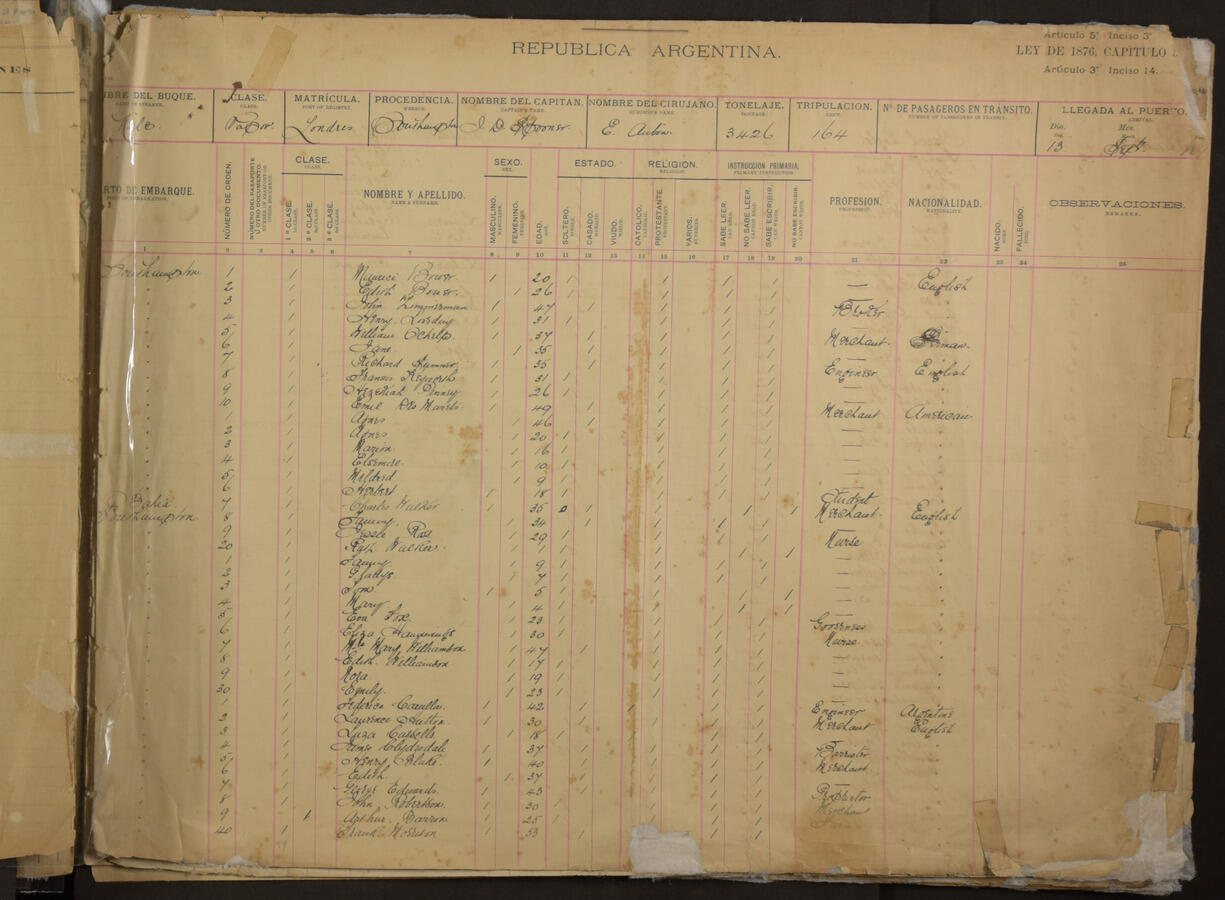 NES
REPUBLICA ARGENTINA.
Articulo 5º Inciso 3º
LEY DE 1876, CAPÍTULO
Artículo 3º Inciso 14.
BRE DEL BUQUE.
CLASE.
CLASE.
MATRÍCULA.
PORT OF REGISTRY.
PROCEDENCIA.
WHENCE.
NOMBRE DEL CAPITAN.
CAPTAIN'S NAME.
NOMBRE DEL CIRUJANO.
SURGEON'S NAME.
TONELAJE.
TONNAGE.
TRIPULACION.
CREW.
Nº DE PASAGEROS EN TRÁNSITO.
NUMBER OF PASSENGERS IN TRANSIT.
LLEGADA AL PUERTO.
ARRIVAL.
Dia. Mes.
Nile Vapor Londres Southampton E. Aubin 3426 164 13 Sept
RTO DE EMBARQUE.
NÚMERO DE ORDEN.
NÚMERO DEL PASAPORTE U OTRO DOCUMENTO.
CLASE.
CLASS.
1ª CLASE.
2ª CLASE.
3ª CLASE.
NOMBRE Y APELLIDO.
NAME & SURNAME.
SEXO.
SEX.
MASCULINO.
FEMENINO.
EDAD.
ESTADO.
SOLTERO.
CASADO.
VIUDO.
RELIGION.
RELIGION.
CATOLICO.
PROTESTANTE.
VARIOS.
INSTRUCCION PRIMARIA.
PRIMARY INSTRUCTION.
SABE LEER.
NO SABE LEER.
SABE ESCRIBIR.
NO SABE ESCRIBIR.
PROFESION.
PROFESSION.
NACIONALIDAD.
NATIONALITY.
NACIDO.
FALLECIDO.
OBSERVACIONES.
REMARKS.
1 2 3 4 5 6 7 8 9 10 11 12 13 14 15 16 17 18 19 20 21 22 23 24 25
Southampton 1 Maurice Bower 20 — English
2 Edith Bower. 26 —
3 John Zimmerman 47
4 Henry 31
5 William Ochelps 37 Merchant German
6 Jane 35 —
7 Richard Sumner 35 Engineer English
8 Francis 31
9 Hezekiah Pinney 26
10 Emil 49 Merchant American
1 Agnes 46 —
2 Agnes 20 —
3 Marion 16 —
4 10 —
5 Mildred 9 —
6 Herbert 18 Student
Bahia 7 Charles Walker 35 Merchant English
Southampton 8 Fanny 34 —
9 Ross 29 Nurse
20 Ruth Walker 1 —
1 Fanny 9 —
2 Gladys 7 —
3 Tom 5 —
4 Mary 4 —
5 Eva Fox 23 Governess
6 Eliza 30 Nurse
7 Mrs Mary Williamson 47 —
8 Edith Williamson 17 —
9 Roza 19 —
30 Emily 23 —
1 Federico Carulla 42 Engineer Argentine
2 Laurence Hutton 30 Merchant English
3 Luza Cassells 18 —
4 Clydesdale 37 Barrister
5 Henry Blake 40 Merchant
6 Edith 37 —
7 George Edwards 43
8 John Robertson 30
9 Arthur Barron 25
40 Frank Morrison 53